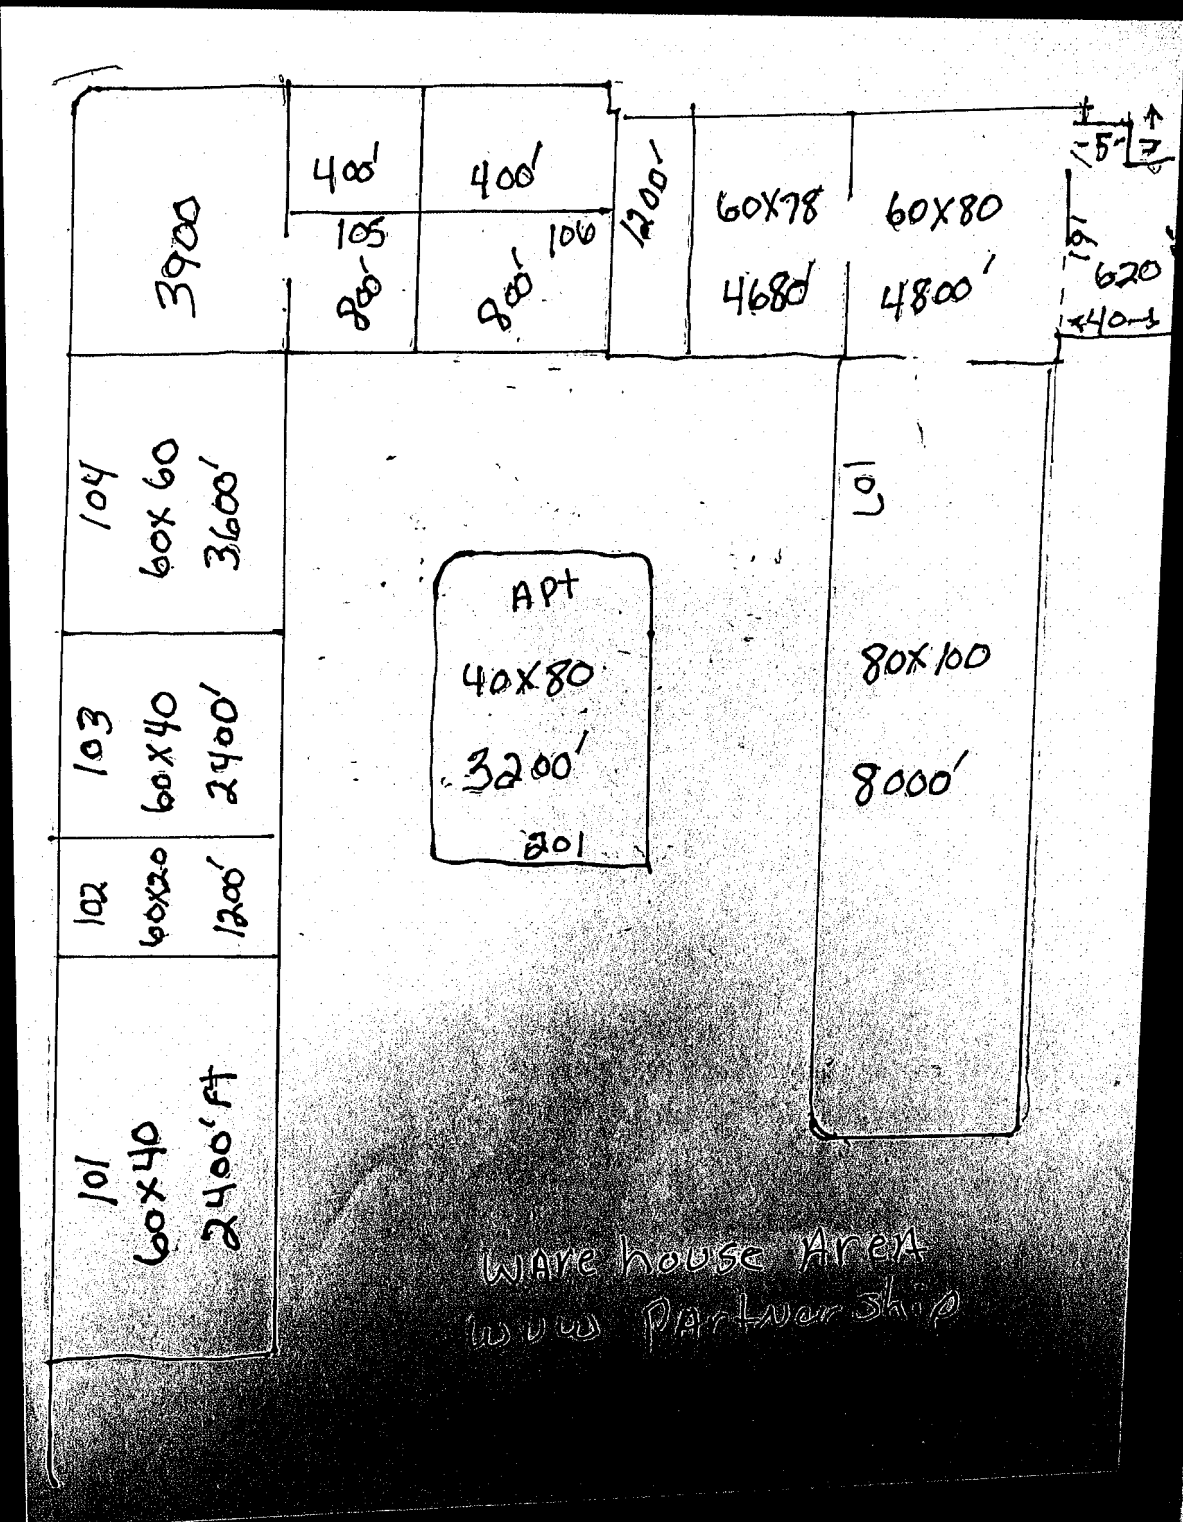 3900
400'
400'
105
106
800'
800'
1200'
60X78
4680'
60X80
4800'
-5-
7
19'
620
40
104
60X60
3600'
103
60X40
2400'
102
60X20
1200'
101
60X40
2400'Ft
APt
40X80
3200'
201
80X100
8000'
WArehouse AreA
WUW PArtnership